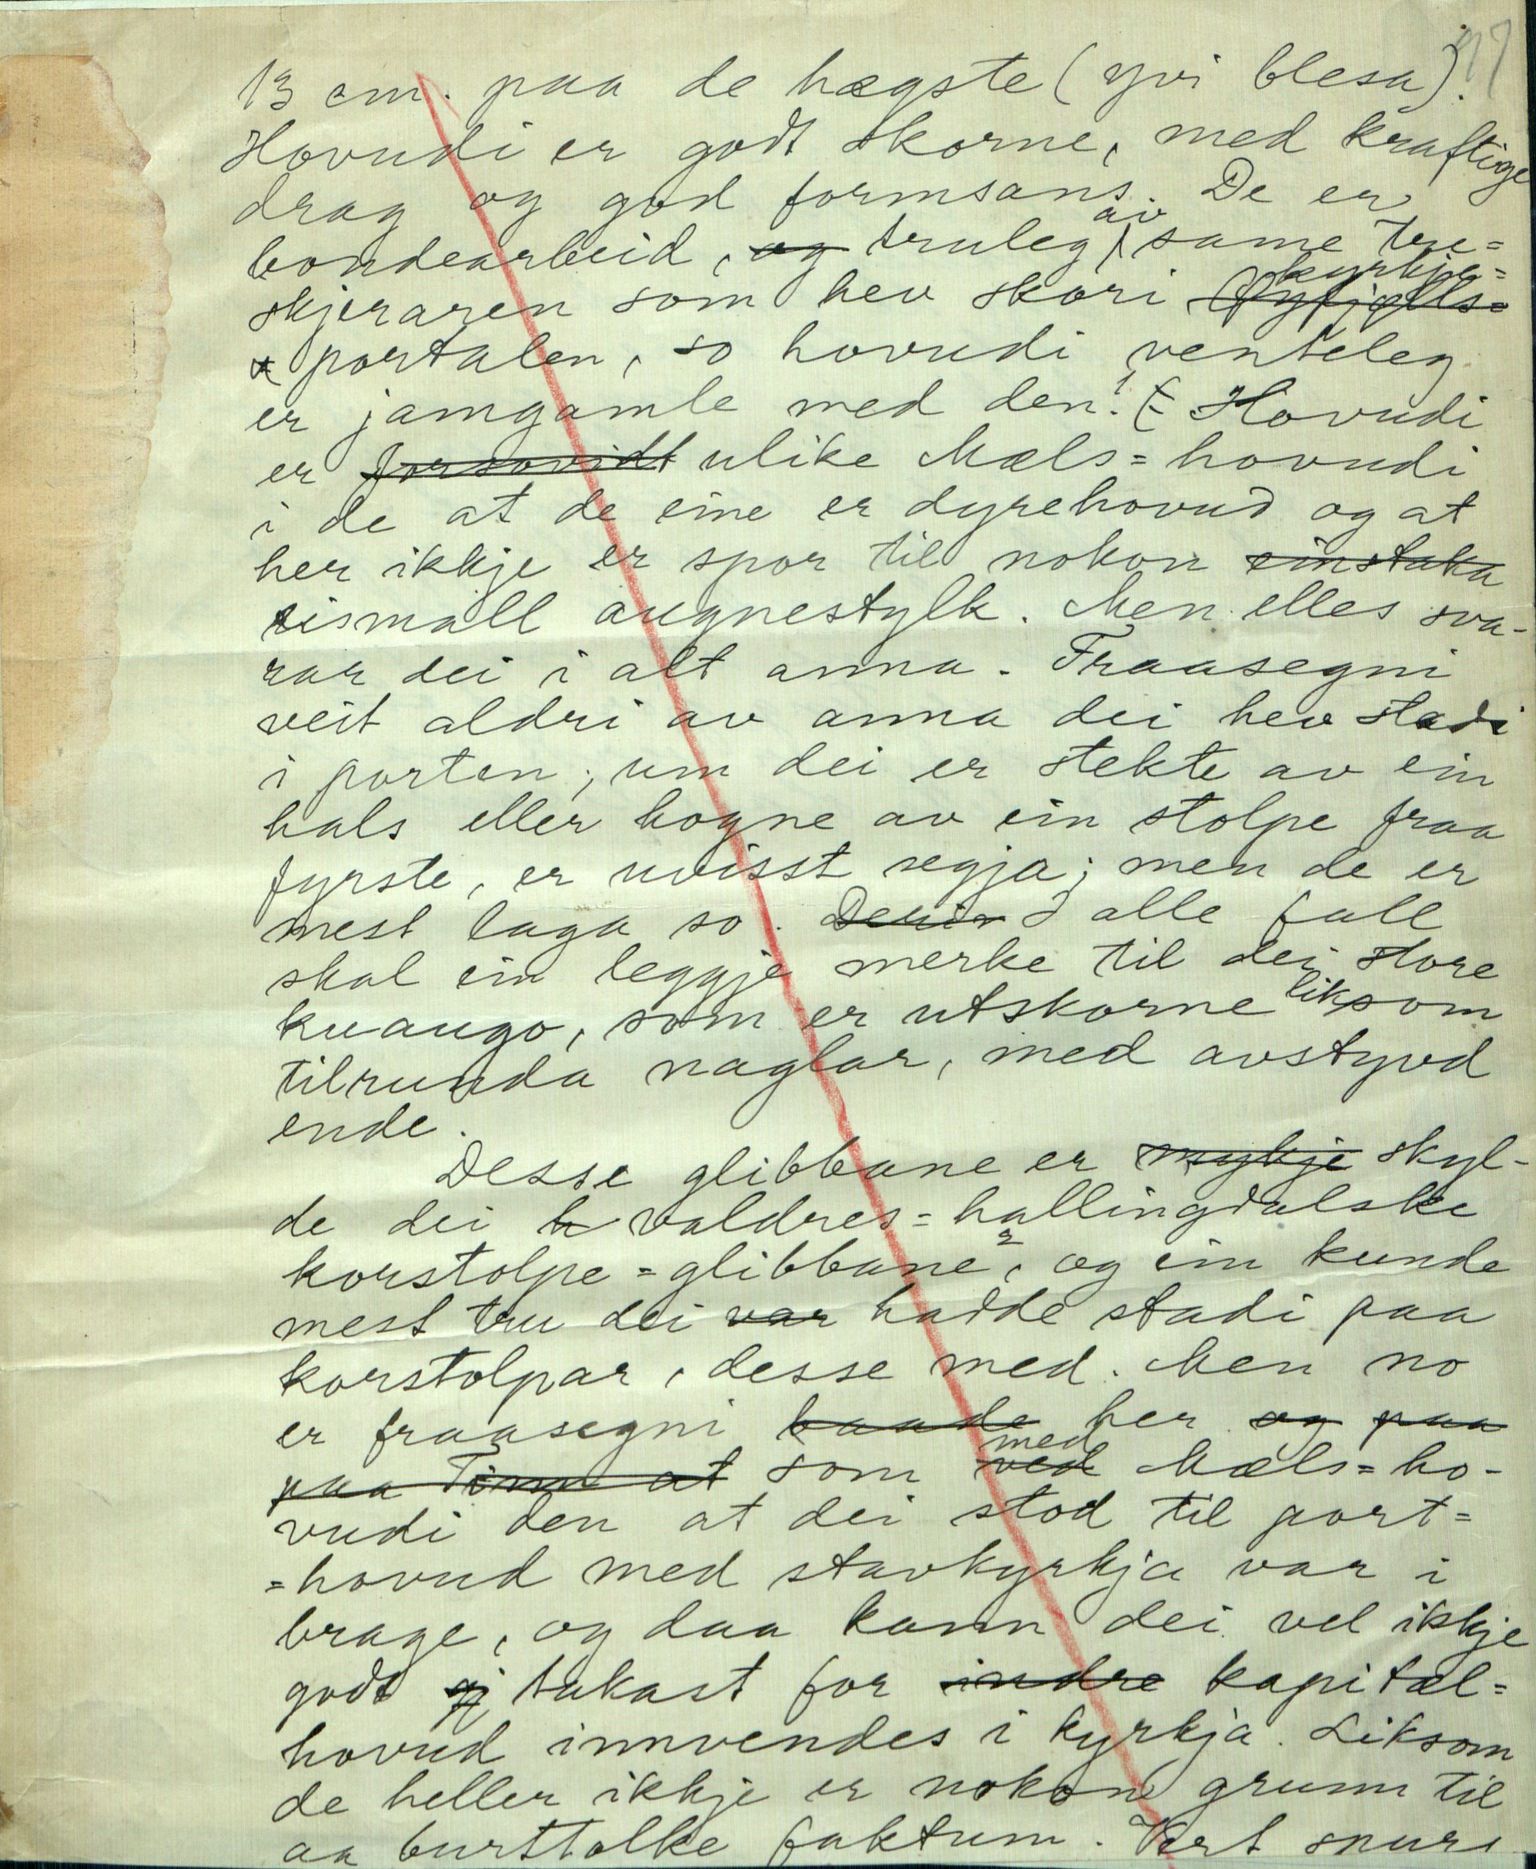 97
13 cm. paa de hægste (yvi blesa).
Hovudi er godt skorne, med kraftige
drag og god formsans. De er
bondearbeid, og truleg av same tre=
skjeraren som hev skori kyrkje=
portalen, so hovudi venteleg
er jamgamle med den.1 Hovudi
er forsovidt ulike Mæls=hovudi
i de at de eine er dyrehovud og at
her ikkje er spor til nokon einstaka
rismall augnestylk. Men elles sva-
rar dei i alt anna. Fraasegni
veit aldri av anna dei hev stadi
i porten; um dei er stekte av ein
hals eller hogne av ein stolpe fraa
fyrste, er uvisst segja; men de er
mest laga so. I alle fall
skal ein leggje merke til dei store
kuaugo, som er utskorne liksom
tilrunda naglar, med avstyvd
ende.
Desse glibbane er mykje skyl-
de dei valdres=hallingdalske
korstolpe=glibbane2, og ein kunde
mest tru dei var hadde stadi paa
korstolpar, desse med. Men no
er fraasegni baade her og paa
paa Tinn at som med ved Mæls=ho-
vudi den at dei stod til port=
=hovud med stavkyrkja var i
brage, og daa kann dei vel ikkje
godt takast for indre kapitæl=
hovud innvendes i kyrkja. Liksom
de heller ikkje er nokon grunn til
aa burttolke faktum. Vert spurs